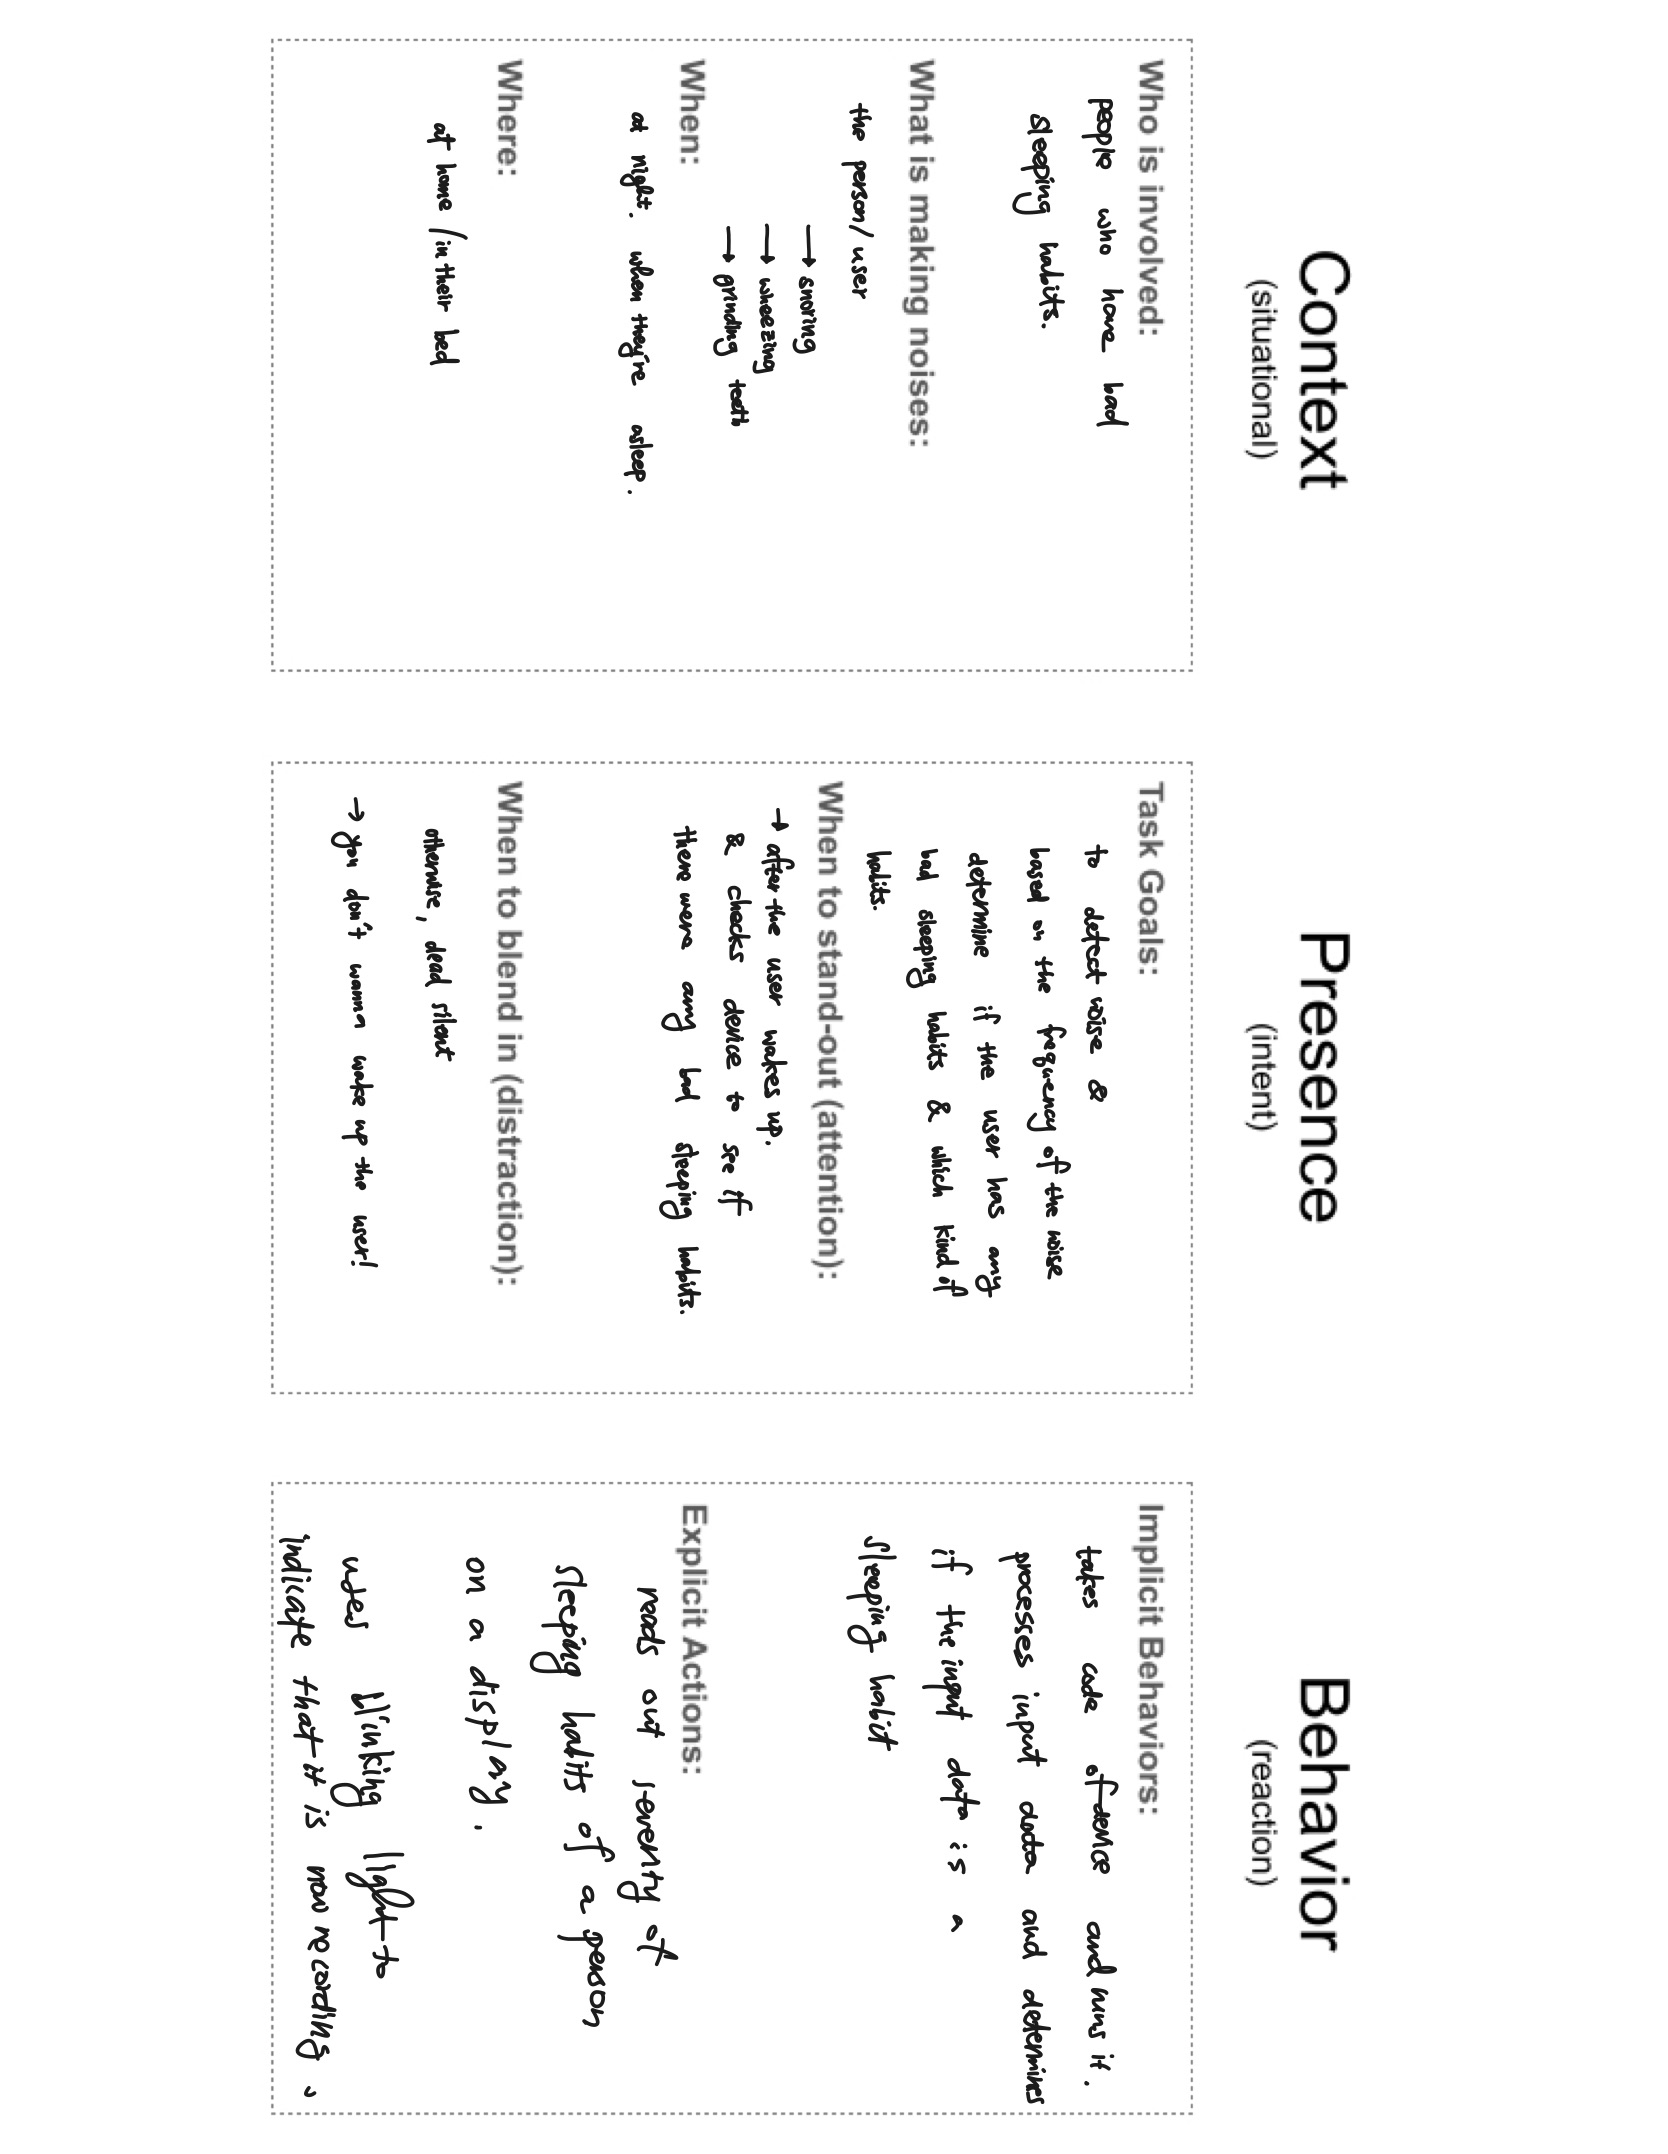 Context
(situational)
Who is involved:
people who have bad
sleeping habits.
What is making noises:
the person/user
→ snoring
→ wheezing
→ grinding teeth
When:
at night. when they're asleep.
Where:
at home / in their bed
Presence
(intent)
Task Goals:
to detect noise &
based on the frequency of the noise
determine if the user has any
bad sleeping habits & which kind of
habits.
When to stand-out (attention):
→ after the user wakes up.
& checks device to see if
there were any bad sleeping habits.
When to blend in (distraction):
otherwise, dead silent
→ you don't wanna wake up the user!
Behavior
(reaction)
Implicit Behaviors:
takes code of device and runs it.
processes input data and determines
if the input data is a
sleeping habit
Explicit Actions:
reads out severity of
sleeping habits of a person
on a display.
uses blinking light to
indicate that it is now recording.